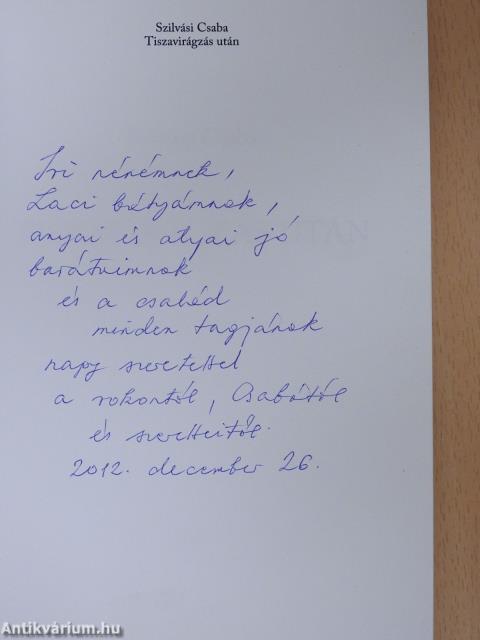 Szilvási Csaba
Tiszavirágzás után
Iri nénémnek,
Laci bátyámnak,
anyai és atyai jó
barátaimnak
és a család
minden tagjának
nagy szeretettel
a rokontól, Csabától
és szeretteitől.
2012. december 26.
Antikvárium.hu